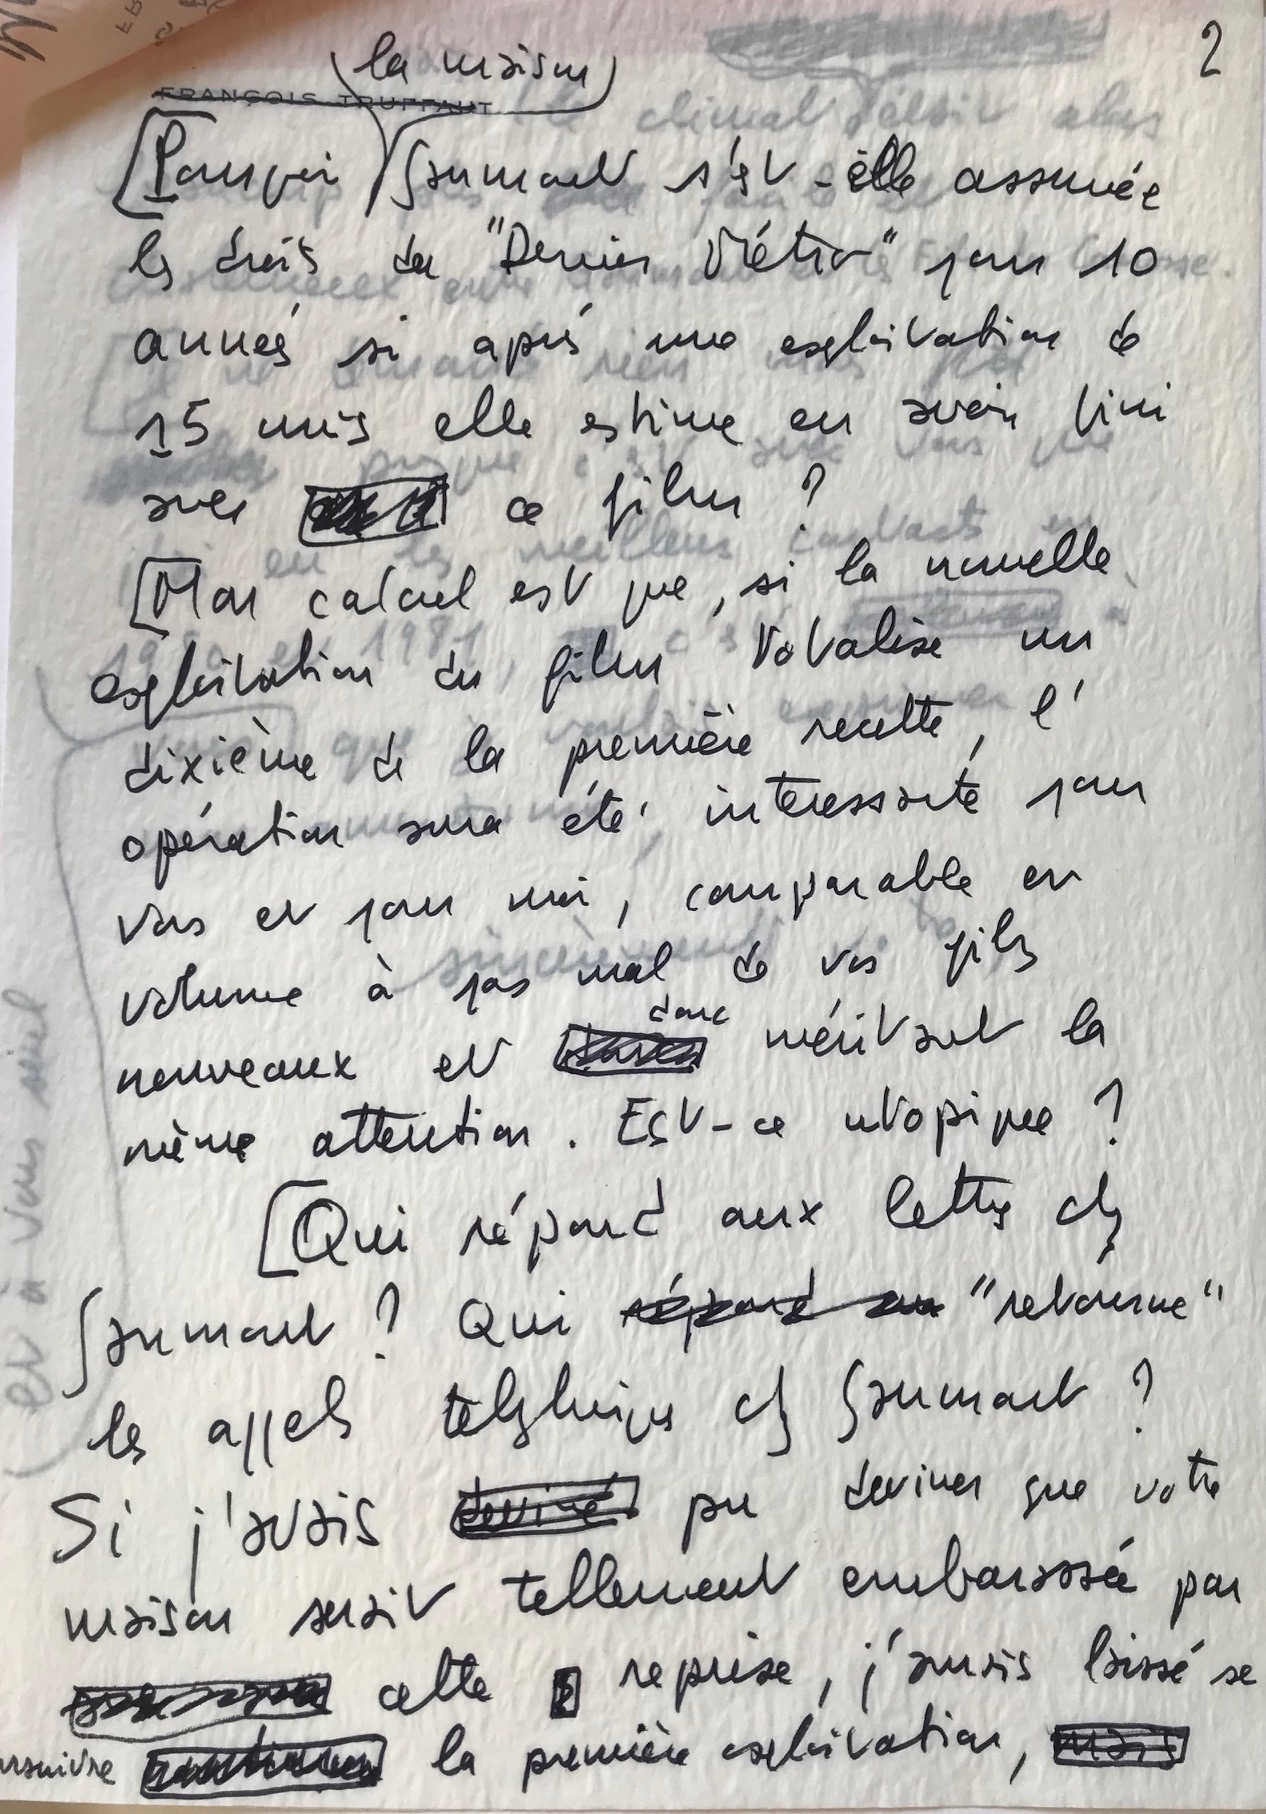 2
la maison
FRANÇOIS TRUFFAUT
[Pourquoi Gaumont s'est-elle assurée
les droits du "Dernier Métro" pour 10
années si après une exploitation de
15 mois elle estime en avoir fini
avec ce film ?
[Mon calcul est que, si la nouvelle
exploitation du film totalise un
dixième de la première recette, l'
opération aura été intéressante pour
vous et pour moi, comparable en
volume à pas mal de vos films
nouveaux et donc méritant la
même attention. Est-ce utopique ?
[Qui répond aux lettres chez
Gaumont ? Qui répond aux "retourne"
les appels téléphoniques chez Gaumont ?
Si j'avais deviné pu deviner que votre
maison serait tellement embarassée par
cette reprise, j'aurais laissé se
poursuivre la première exploitation, mais
et à vous seul